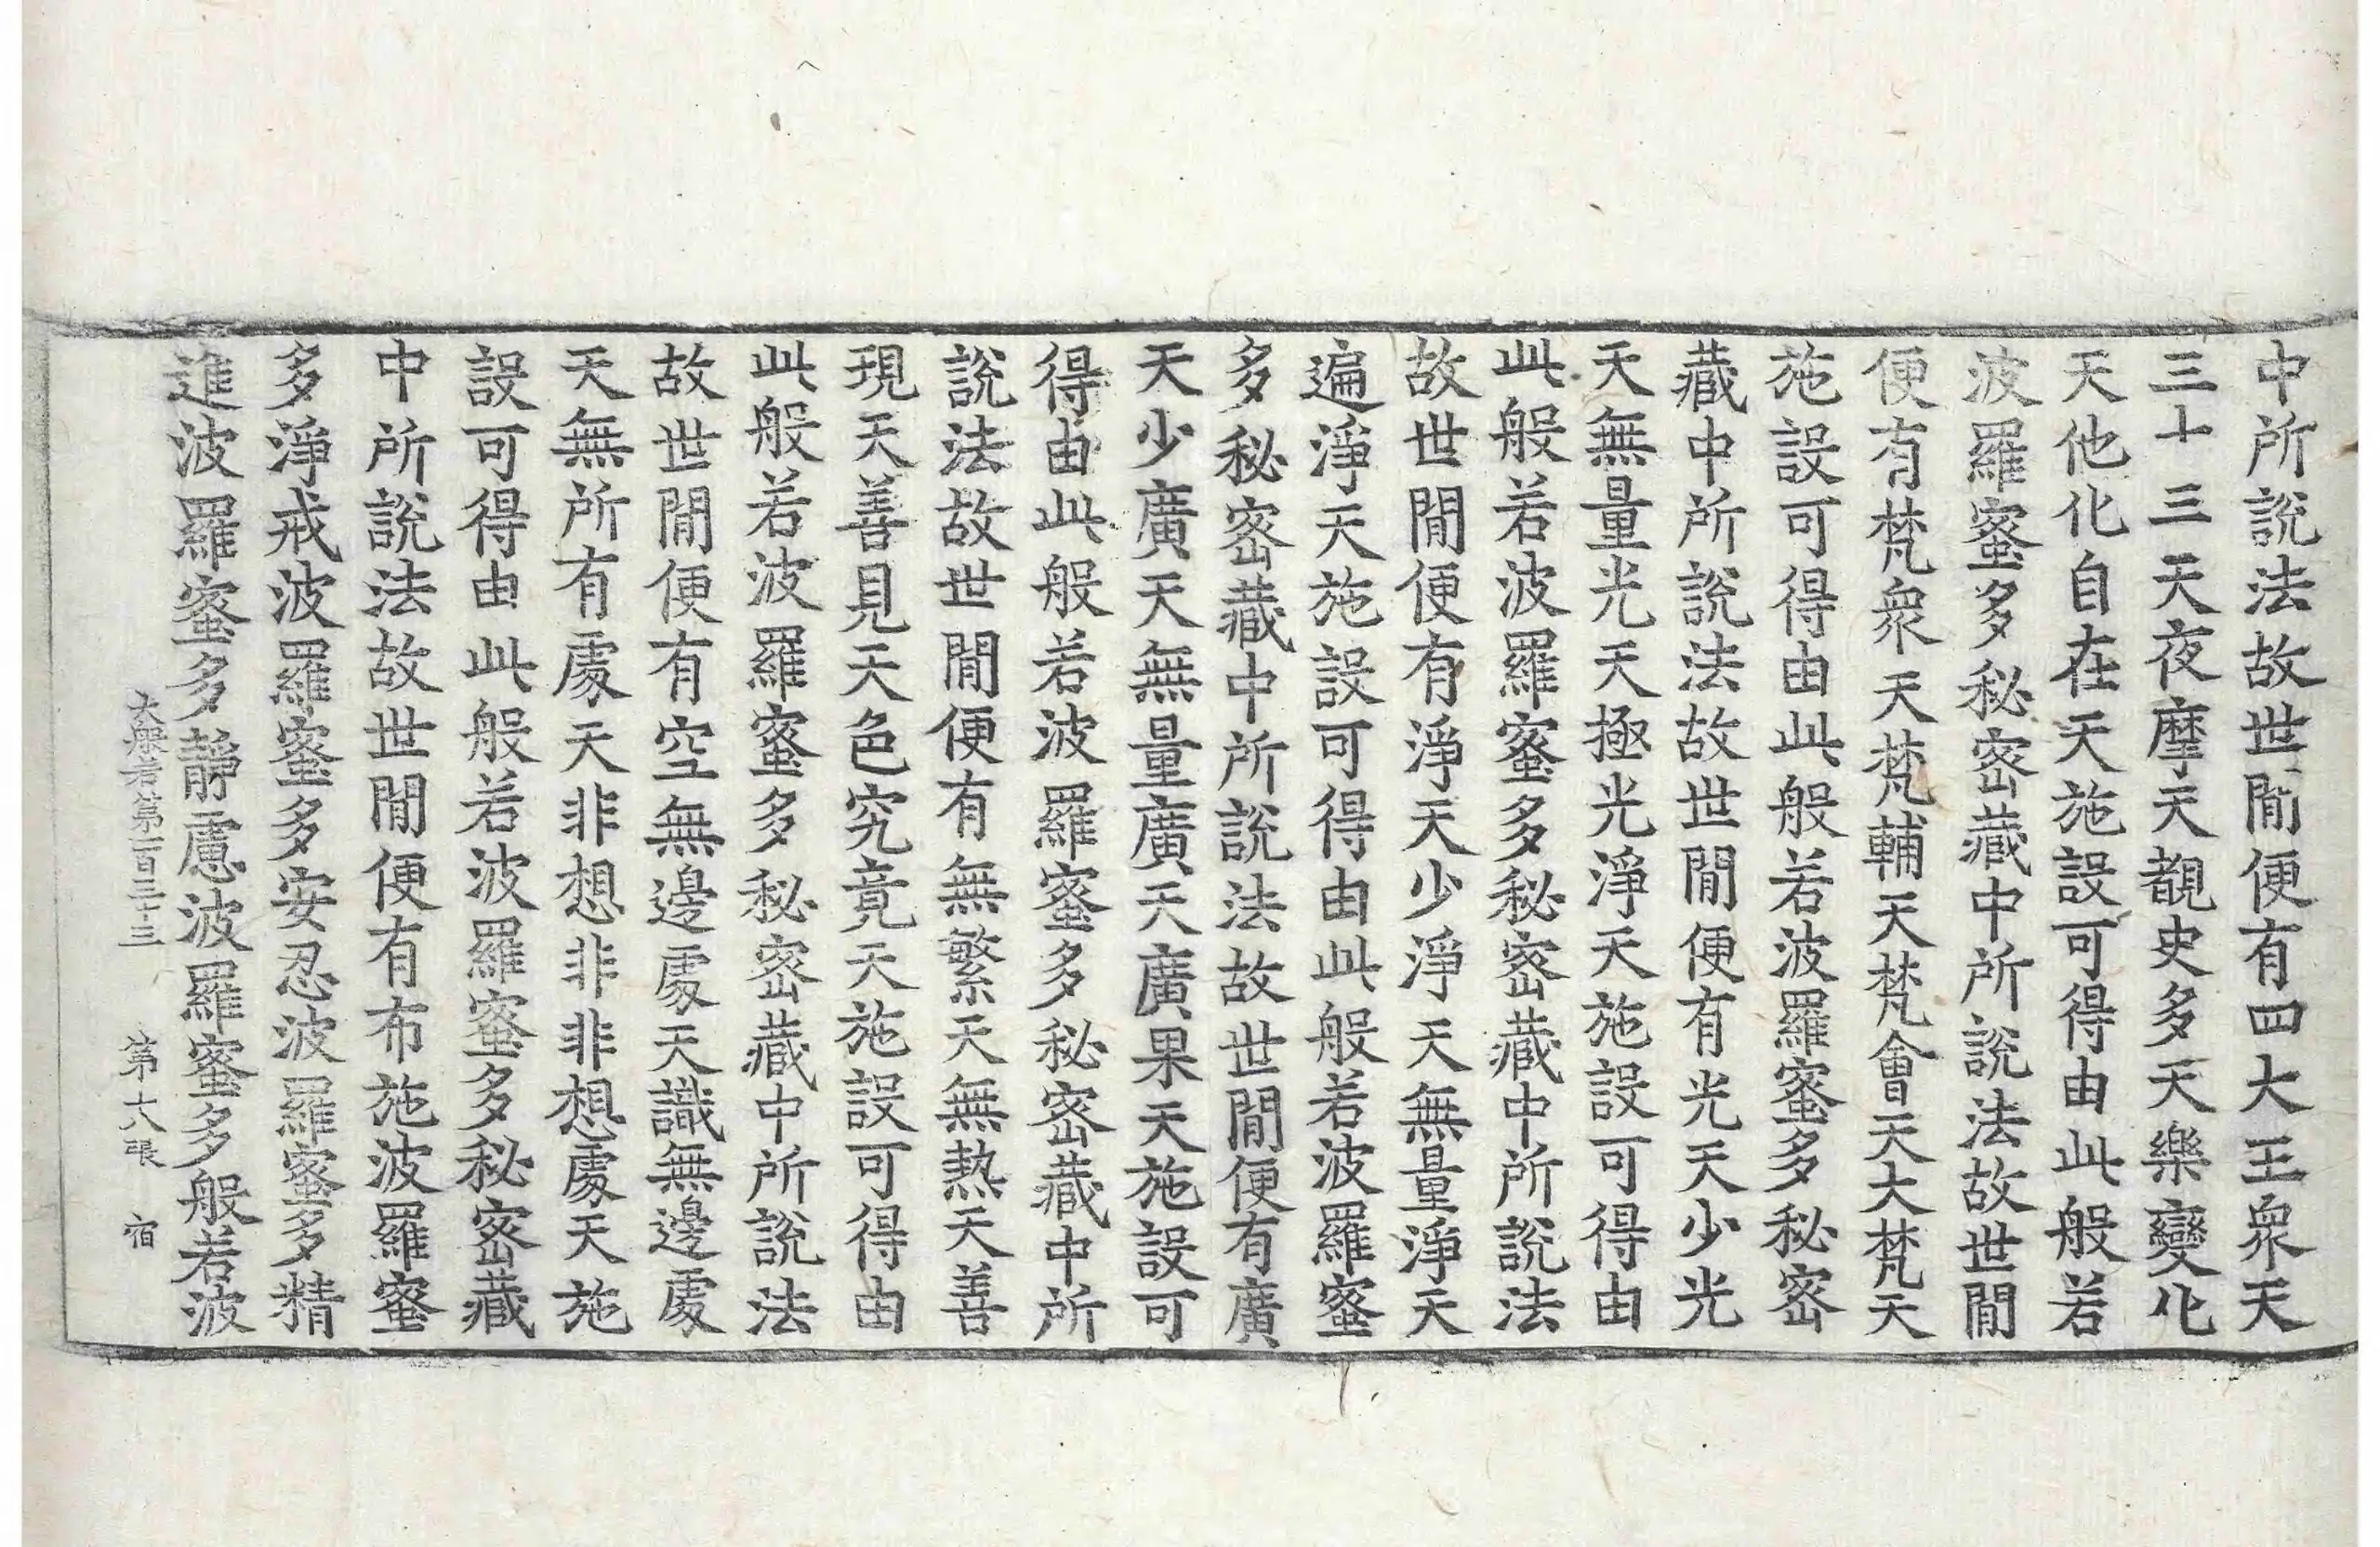 中所說法故世閒便有四大王衆天
三十三天夜摩天覩史多天樂變化
天他化自在天施設可得由此般若
波羅蜜多秘密藏中所說法故世閒
便有梵衆天梵輔天梵會天大梵天
施設可得由此般若波羅蜜多秘密
藏中所說法故世閒便有光天少光
天無量光天極光淨天施設可得由
此般若波羅蜜多秘密藏中所說法
故世閒便有淨天少淨天無量淨天
遍淨天施設可得由此般若波羅蜜
多秘密藏中所說法故世閒便有廣
天少廣天無量廣天廣果天施設可
得由此般若波羅蜜多秘密藏中所
說法故世閒便有無繁天無熱天善
現天善見天色究竟天施設可得由
此般若波羅蜜多秘密藏中所說法
故世閒便有空無邊處天識無邊處
天無所有處天非想非非想處天施
設可得由此般若波羅蜜多秘密藏
中所說法故世閒便有布施波羅蜜
多淨戒波羅蜜多安忍波羅蜜多精
進波羅蜜多靜慮波羅蜜多般若波
大般若第一百三十三 第十八張 宿